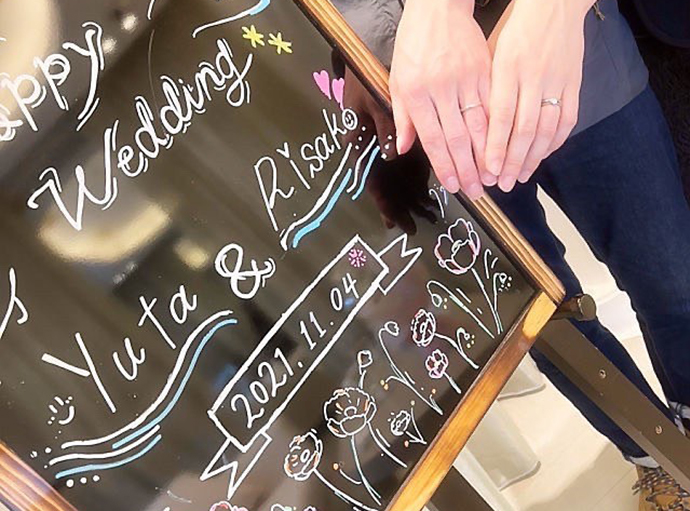 appy
Wedding
Yuta & Risako
2021.11.04